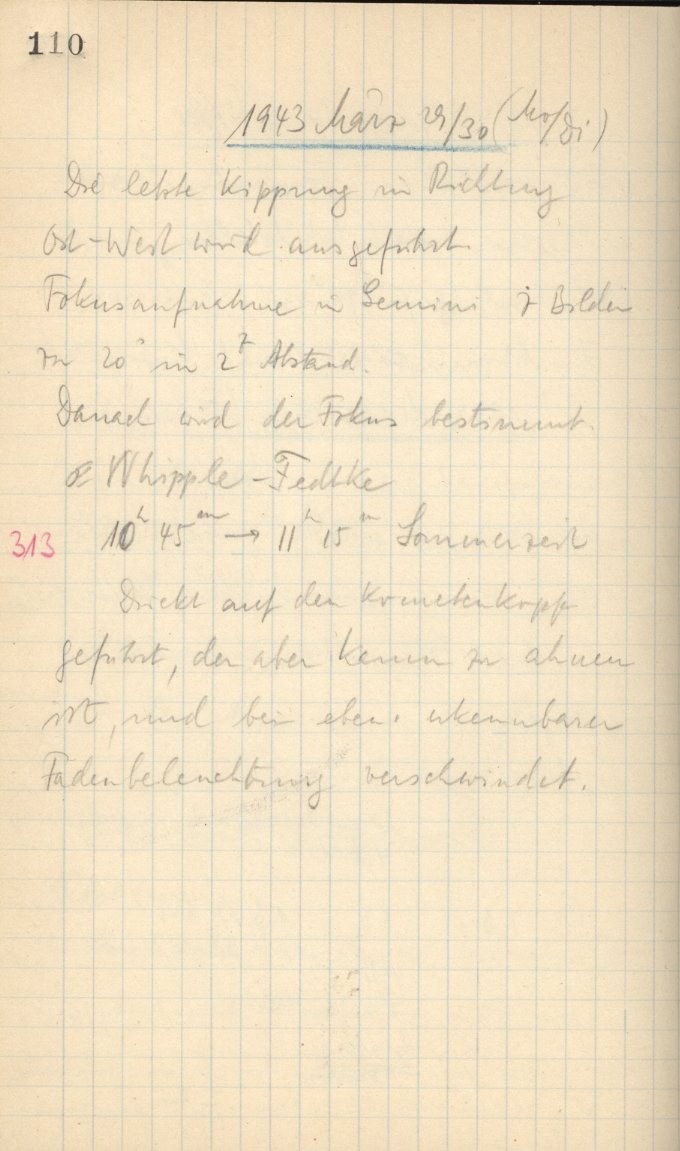 110
1943 März 29/30 (Mo/Di)
Die letzte Kippung in Richtung
Ost-West wird ausgeführt.
Fokusaufnahme in Gemini 7 Bilder
zu 20ˢ in 2 Abstand.
Danach wird der Fokus bestimmt.
Whipple-Fedtke
313 10ʰ 45ᵐ → 11ʰ 15ᵐ Sommerzeit
Direkt auf den Kometenkopf
geführt, der aber kaum zu ahnen
ist, und bei eben erkennbarer
Fadenbeleuchtung verschwindet.